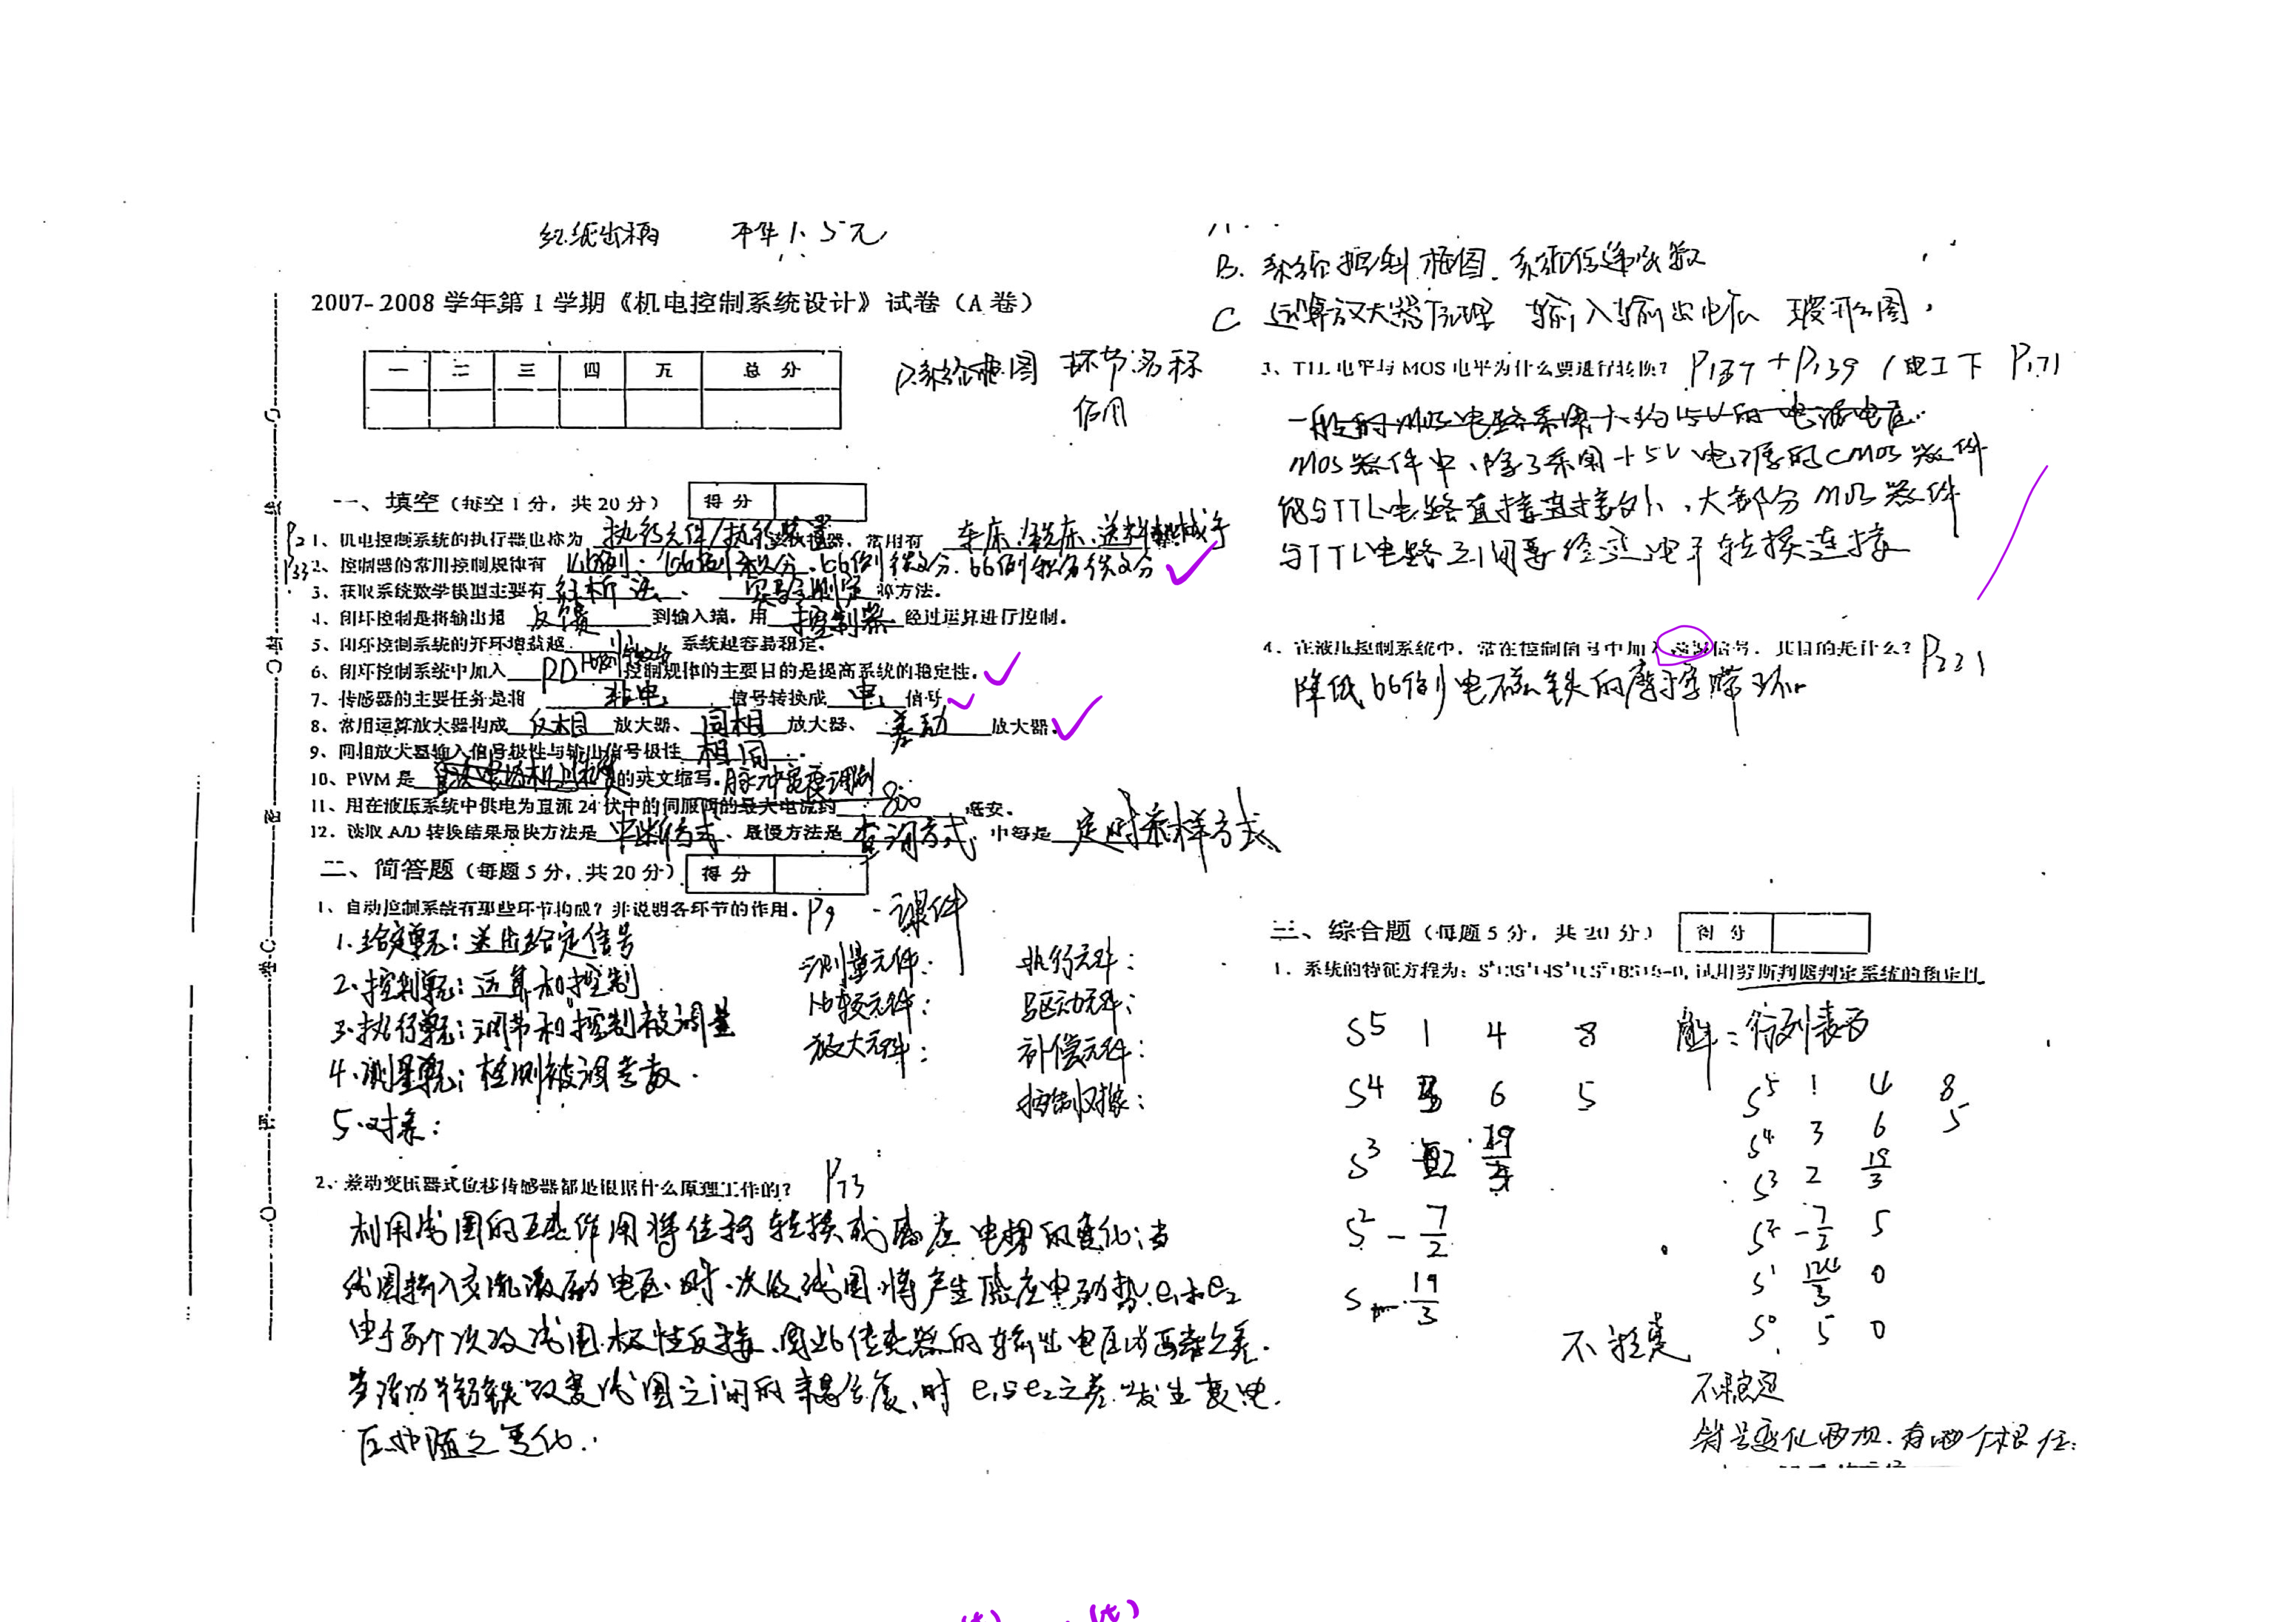 2007-2008 学年第 1 学期《机电控制系统设计》试卷（A 卷）
一 二 三 四 五 总 分
环节名称
作用
一、填空（每空 1 分，共 20 分） 得 分
P2 1、机电控制系统的执行器也称为 执行元件/执行装置 器，常用有 车床、铣床、送料机械手
P33 2、控制器的常用控制规律有 比例、比例积分、比例微分、比例积分微分
3、获取系统数学模型主要有 解析法、 实验测定 等方法。
4、闭环控制是将输出通 反馈 到输入端，用 控制器 经过运算进行控制。
5、闭环控制系统的开环增益越 小 系统越容易稳定。
6、闭环控制系统中加入 PD 比例微分 控制规律的主要目的是提高系统的稳定性。
7、传感器的主要任务是将 非电 信号转换成 电 信号
8、常用运算放大器构成 反相 放大器、 同相 放大器、 差动 放大器。
9、同相放大器输入信号极性与输出信号极性 相同 .
10、PWM 是 的英文缩写。脉冲宽度调制
11、用在液压系统中供电为直流 24 伏中的伺服阀的最大电流约 800 毫安。
12、读取 A/D 转换结果最快方法是 中断方式 、最慢方法是 查询方式 ，中等是 定时采样方式
二、简答题（每题 5 分，共 20 分） 得 分
1、自动控制系统有那些环节构成？并说明各环节的作用。 P9 课件
1.给定单元：送出给定信号
2.控制单元：运算和控制
3.执行单元：调节和控制被调量
4.测量单元：检测被调参数.
5.对象：
测量元件：
比较元件：
放大元件：
执行元件：
驱动元件：
补偿元件：
控制对象：
2、差动变压器式位移传感器都是根据什么原理工作的？ P73
利用线圈的互感作用将位移转换成感应电势的变化；当
线圈输入交流激励电压时，次级线圈将产生感应电动势e1和e2
由于两个次级线圈极性反接、因此传感器的输出电压为两者之差.
当活动衔铁改变线圈之间的耦合度，时 e1与e2之差发生变化.
压也随之变化.
B. 系统控制框图. 系统传递函数
C 运算放大器原理 输入输出电压 波形图,
3、TTL 电平与 MOS 电平为什么要进行转换？ P137+P139 (电工下 P171
一般的MOS电路采用大约15V的电源电压.
MOS器件中，除了采用+5V电源的CMOS器件
能与TTL电路直接连接外，大部分MOS器件
与TTL电路之间要经过电平转换连接
4、在液压控制系统中，常在控制信号中加入 信号，其目的是什么？ P221
降低比例电磁铁的摩擦滞环.
三、综合题（每题 5 分，共 20 分） 得 分
1、系统的特征方程为：S⁵+3S⁴+4S³+6S²+8S+5=0, 试用劳斯判据判定系统的稳定性
S⁵ 1 4 8
S⁴ 3 6 5
S³ 2 19/3
S² -7/2
S 19/3
解：行列表为
S⁵ 1 4 8
S⁴ 3 6 5
S³ 2 19/3
S² -7/2 5
S¹ 0
S⁰ 5 0
不稳定
不稳定
符号变化两次. 有两个根在: